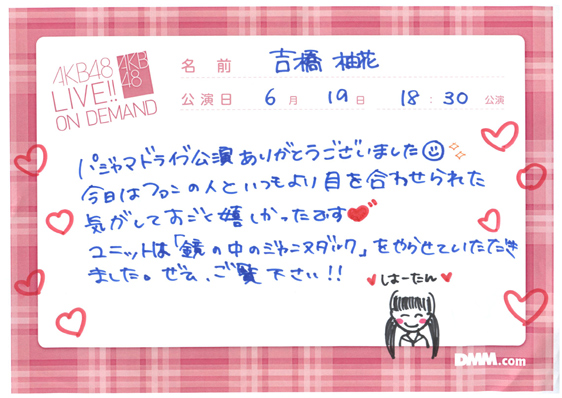 AKB48
LIVE!!
ON DEMAND
AKB
48
名前 吉橋 柚花
公演日 6月 19日 18:30 公演
パジャマドライブ公演ありがとうございました
今日はファンの人といつもより目を合わせられた
気がしてすごく嬉しかったです
ユニットは「鏡の中のジャンヌダルク」をやらせていただき
ました。ぜひ、ご覧下さい!!
しほーたん
DMM.com